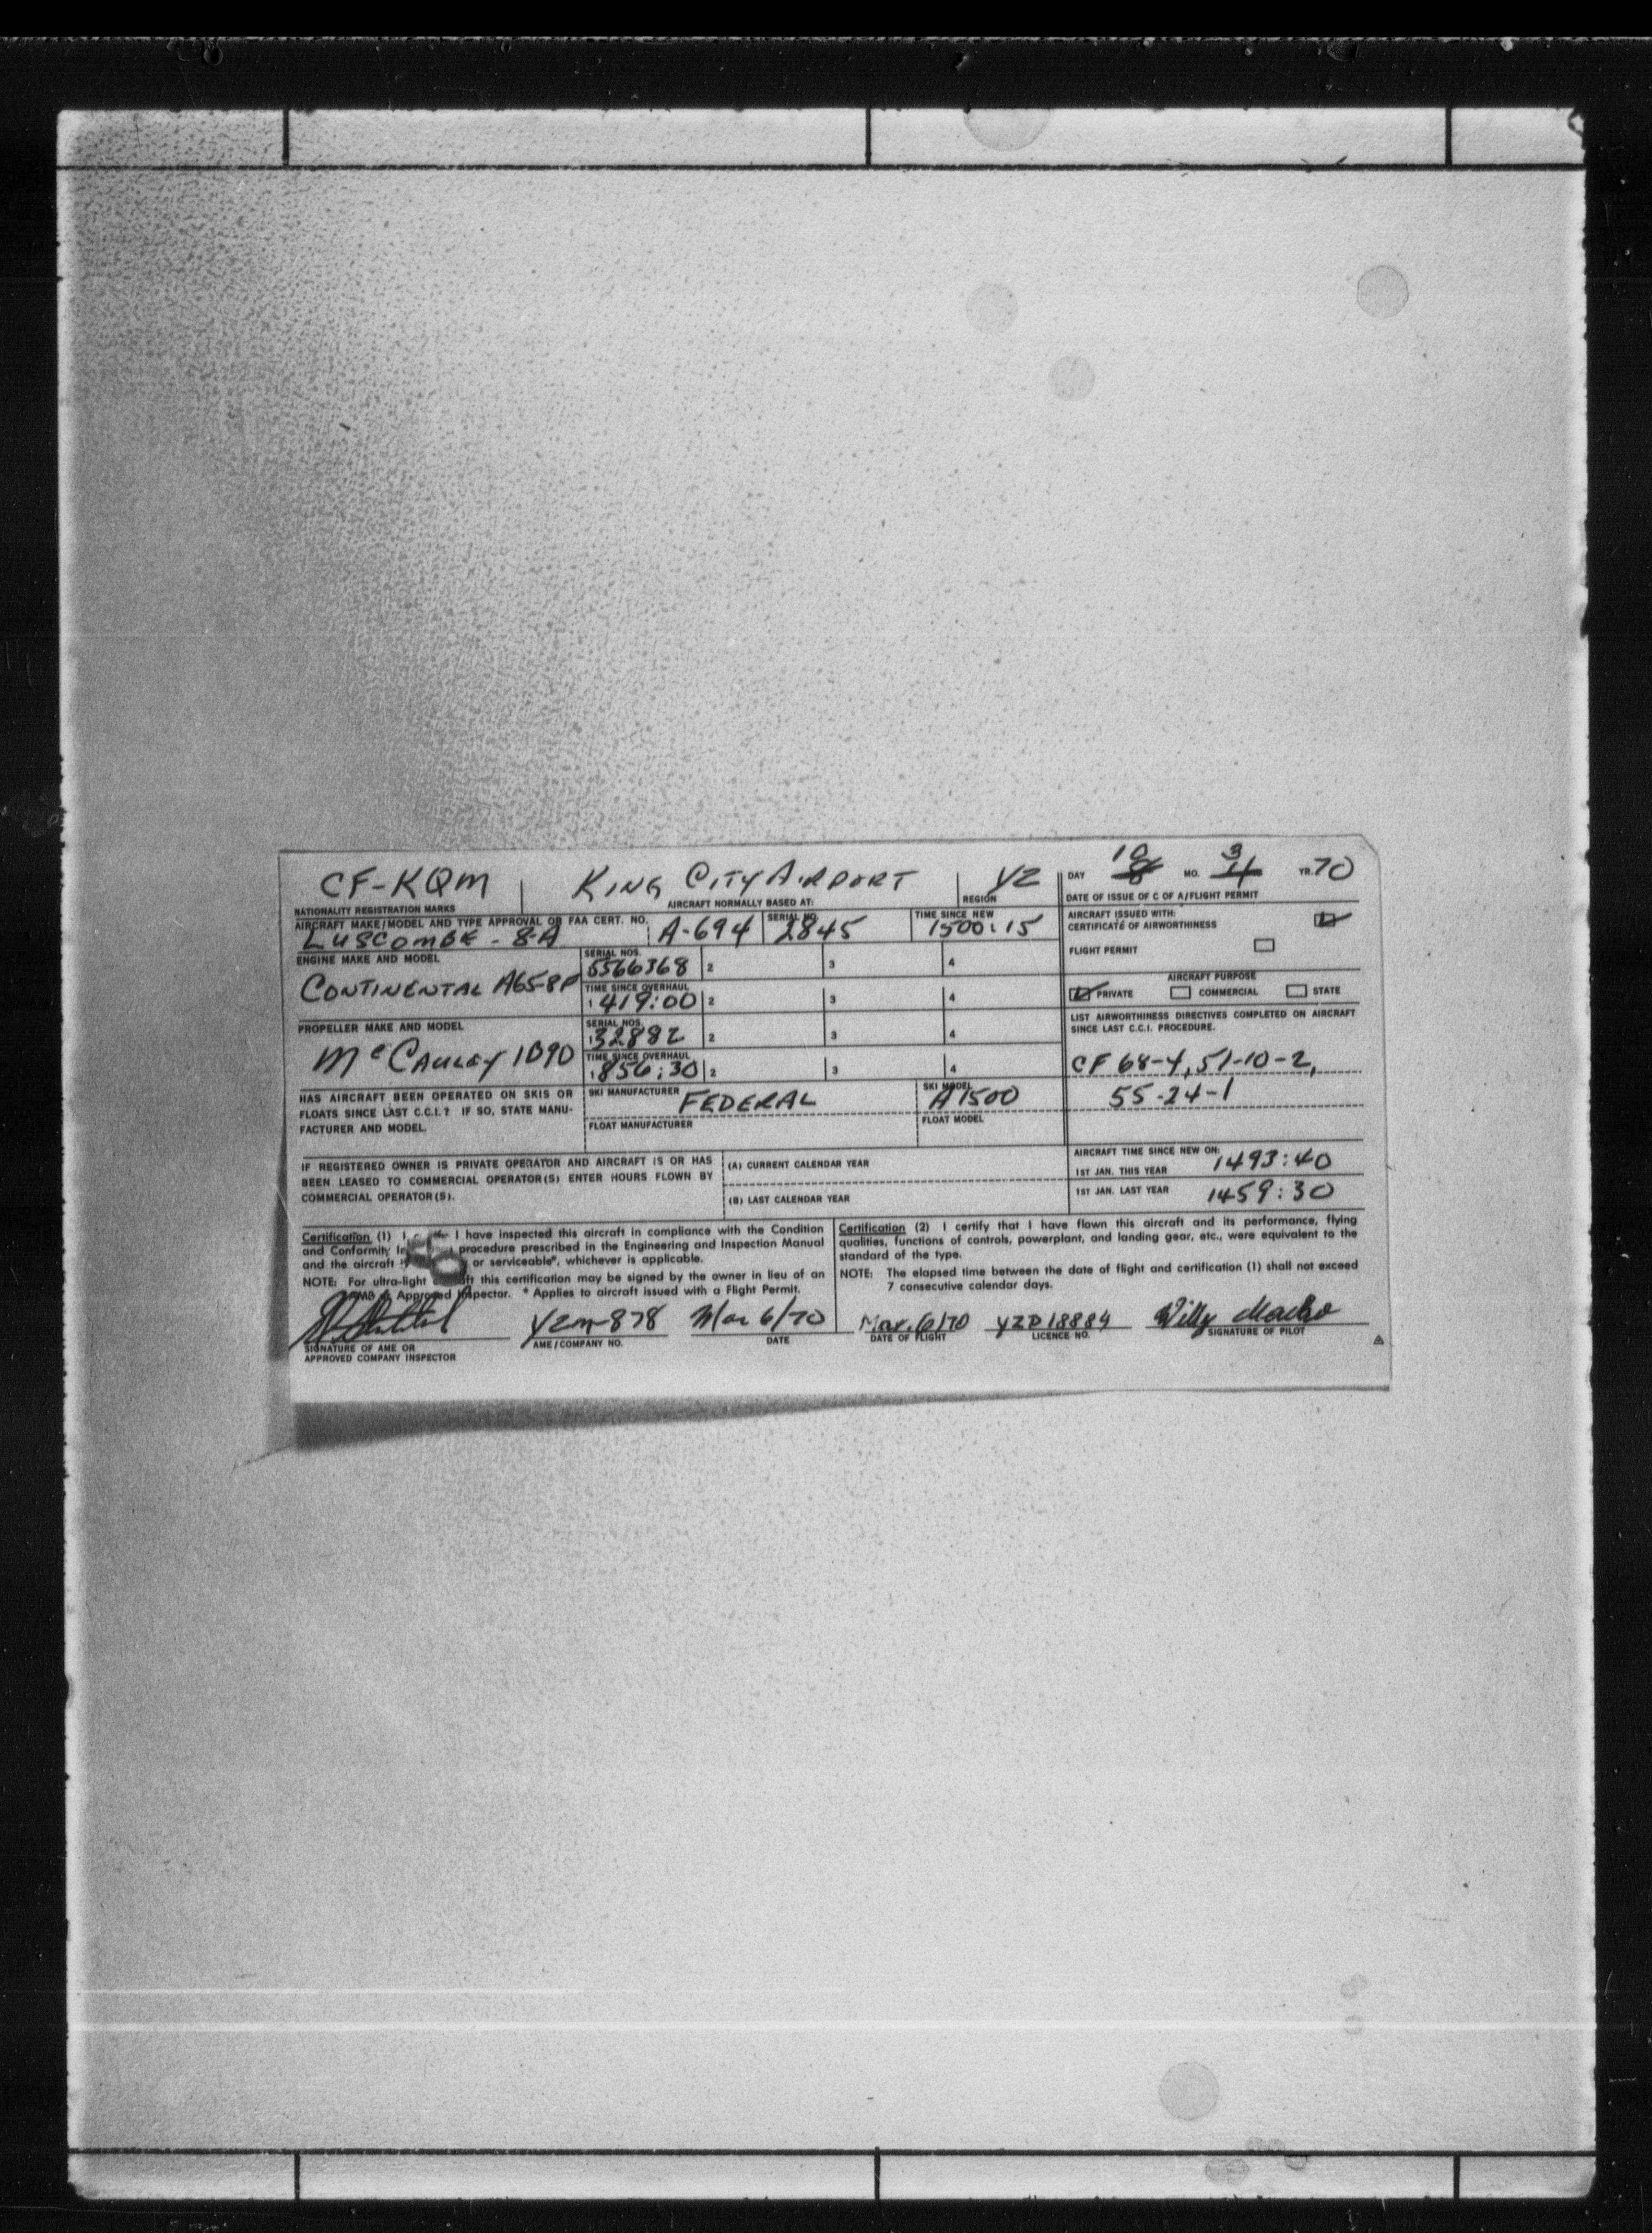 CF-KQM KING CITY AIRPORT YZ DAY 10 8 MO. 3 4 YR. 70
NATIONALITY REGISTRATION MARKS AIRCRAFT NORMALLY BASED AT: REGION DATE OF ISSUE OF C OF A/FLIGHT PERMIT
AIRCRAFT MAKE/MODEL AND TYPE APPROVAL OR FAA CERT. NO. SERIAL NO. TIME SINCE NEW
LUSCOMBE - 8-A A-694 2845 1500:15
AIRCRAFT ISSUED WITH:
CERTIFICATE OF AIRWORTHINESS
FLIGHT PERMIT
ENGINE MAKE AND MODEL
CONTINENTAL A65-8F
SERIAL NOS.
5566368 2 3 4
TIME SINCE OVERHAUL
1 419:00 2 3 4
AIRCRAFT PURPOSE
PRIVATE COMMERCIAL STATE
PROPELLER MAKE AND MODEL
McCAULEY 1B90
SERIAL NOS.
1 32882 2 3 4
TIME SINCE OVERHAUL
1 856:30 2 3 4
LIST AIRWORTHINESS DIRECTIVES COMPLETED ON AIRCRAFT
SINCE LAST C.C.I. PROCEDURE.
CF 68-4, 51-10-2,
55-24-1
HAS AIRCRAFT BEEN OPERATED ON SKIS OR
FLOATS SINCE LAST C.C.I.? IF SO, STATE MANU-
FACTURER AND MODEL.
SKI MANUFACTURER FEDERAL SKI MODEL A1500
FLOAT MANUFACTURER FLOAT MODEL
IF REGISTERED OWNER IS PRIVATE OPERATOR AND AIRCRAFT IS OR HAS
BEEN LEASED TO COMMERCIAL OPERATOR(S) ENTER HOURS FLOWN BY
COMMERCIAL OPERATOR(S).
(A) CURRENT CALENDAR YEAR
(B) LAST CALENDAR YEAR
AIRCRAFT TIME SINCE NEW ON:
1ST JAN. THIS YEAR 1493:40
1ST JAN. LAST YEAR 1459:30
Certification (1) I I have inspected this aircraft in compliance with the Condition
and Conformity procedure prescribed in the Engineering and Inspection Manual
and the aircraft or serviceable*, whichever is applicable.
NOTE: For ultra-light this certification may be signed by the owner in lieu of an
Approved Inspector. * Applies to aircraft issued with a Flight Permit.
YZM-878 Mar 6/70
SIGNATURE OF AME OR
APPROVED COMPANY INSPECTOR
AME/COMPANY NO. DATE
Certification (2) I certify that I have flown this aircraft and its performance, flying
qualities, functions of controls, powerplant, and landing gear, etc., were equivalent to the
standard of the type.
NOTE: The elapsed time between the date of flight and certification (1) shall not exceed
7 consecutive calendar days.
Mar. 6/70 YZP 18884 Willy
DATE OF FLIGHT LICENCE NO. SIGNATURE OF PILOT